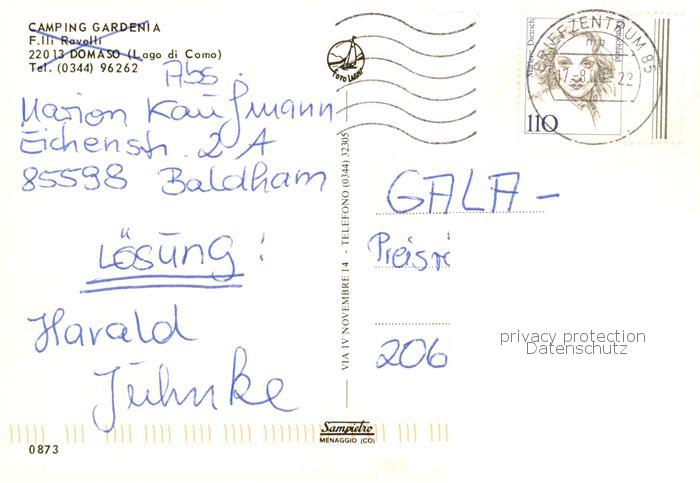 CAMPING GARDENIA
F.lli Ravelli
22013 DOMASO (Lago di Como)
Tel. (0344) 96262
Abs.
Marion Kaufmann
Eichenstr. 2 A
85598 Baldham
Lösung!
Harald
Juhnke
0873
FOTO LAGHI
VIA IV NOVEMBRE 14 - TELEFONO (0344) 32305
Sampietro
MENAGGIO (CO)
Marlene Dietrich
Deutschland
110
BRIEFZENTRUM 85
mp
22
GALA-
Preisr
206
privacy protection
Datenschutz